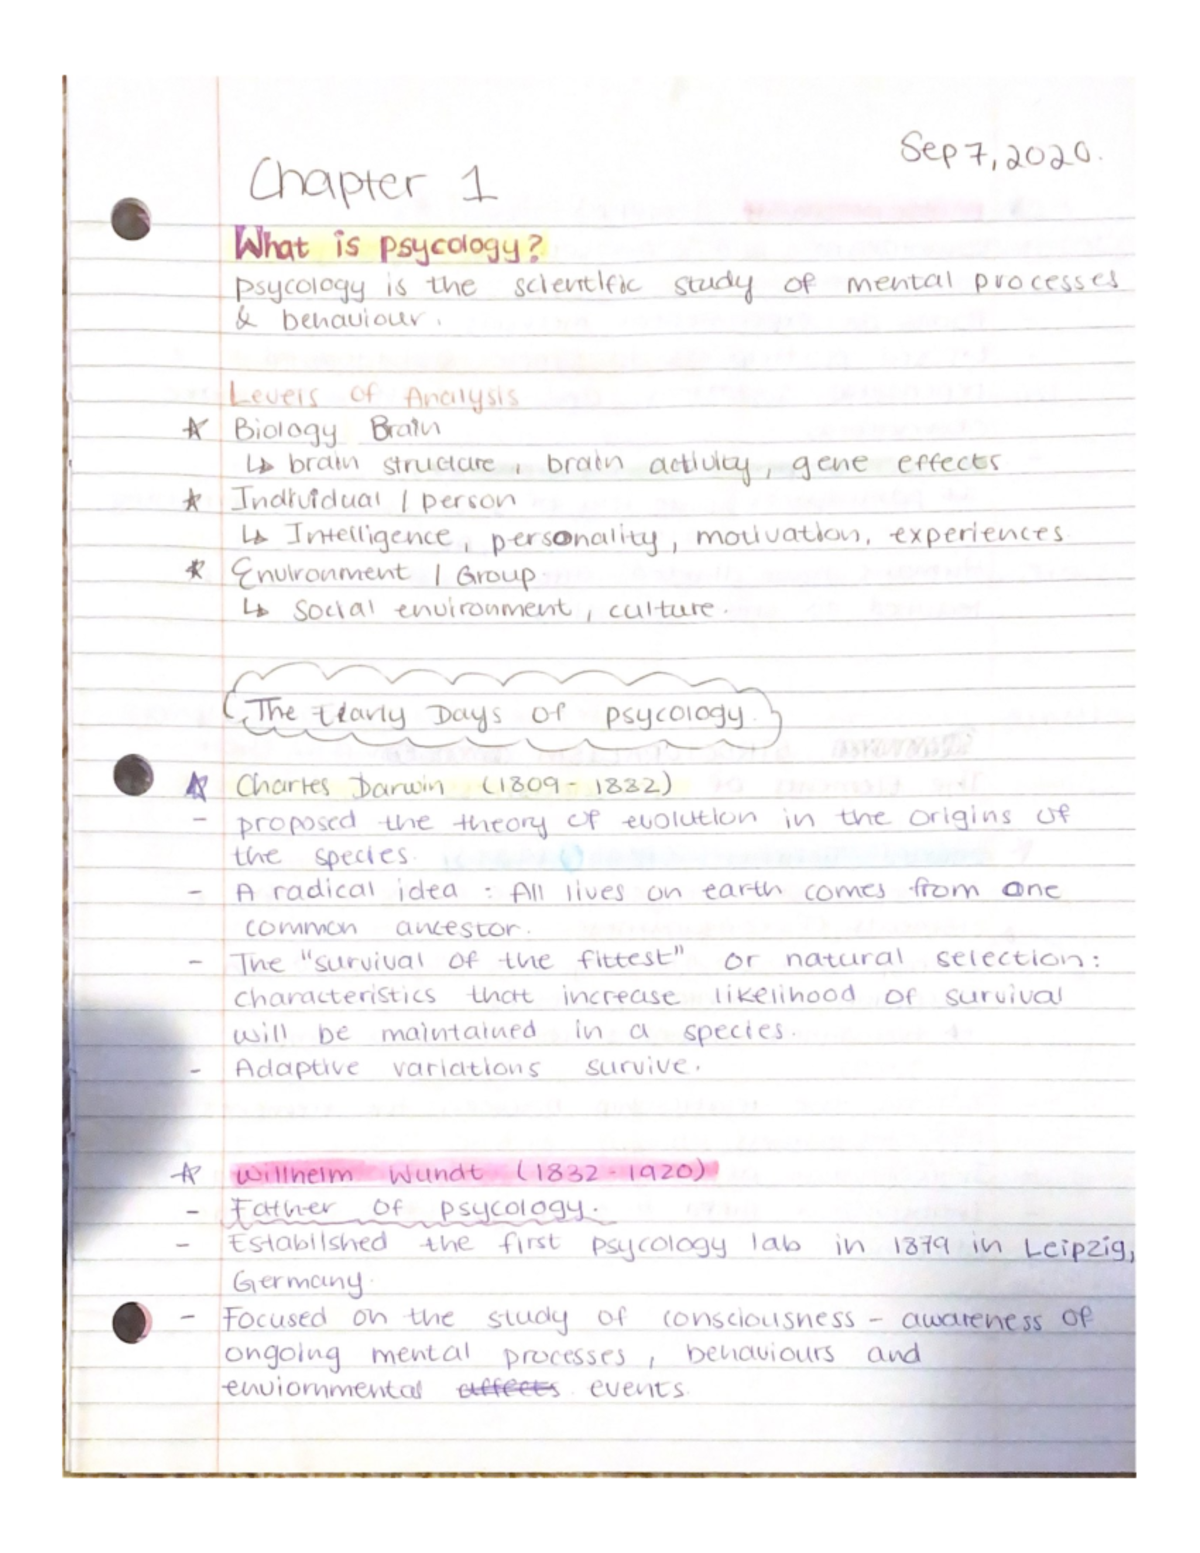 Sep 7, 2020.
Chapter 1
What is psycology?
psycology is the scientific study of mental processes
& behaviour.
Levels of Analysis
☆ Biology Brain
↳ brain structure, brain activity, gene effects
☆ Individual / person
↳ Intelligence, personality, motivation, experiences
☆ Environment / Group
↳ Social environment, culture.
The Early Days of psycology.
☆ Charles Darwin (1809 - 1882)
- proposed the theory of evolution in the origins of
the species.
- A radical idea : All lives on earth comes from one
common ancestor.
- The "survival of the fittest" or natural selection:
characteristics that increase likelihood of survival
will be maintained in a species.
- Adaptive variations survive.
☆ Willhelm Wundt (1832 - 1920)
- Father of psycology.
- Established the first psycology lab in 1879 in Leipzig,
Germany.
- Focused on the study of consciousness - awareness of
ongoing mental processes, behaviours and
enviornmental effects events.